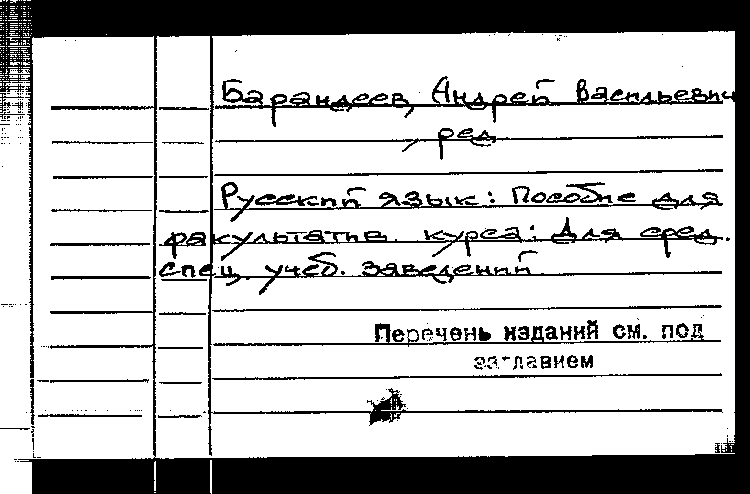 Барандеев, Андрей Васильевич
, ред.
Русский язык: Пособие для
факультатив. курса: Для сред.
спец. учеб. заведений.
Перечень изданий см. под
заглавием